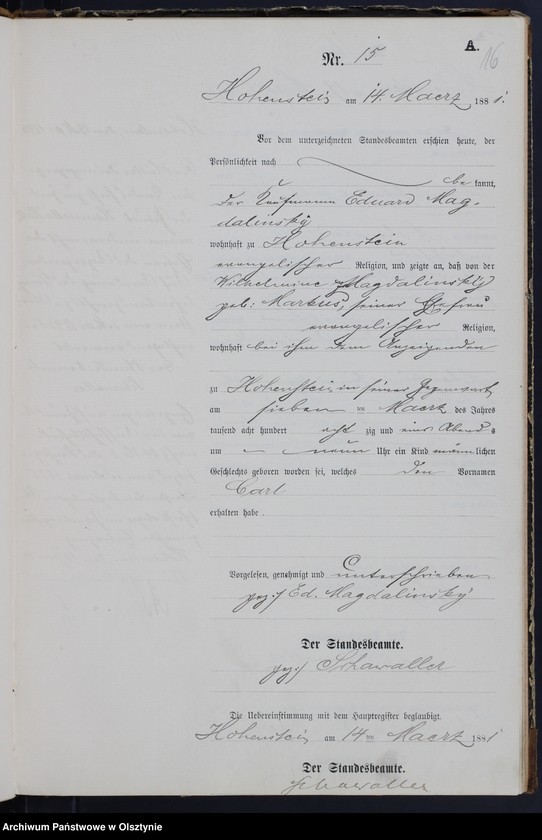 A.
16
Nr. 15
Hohenstein am 14. Maerz 1881.
Vor dem unterzeichneten Standesbeamten erschien heute, der
Persönlichkeit nach
be kannt,
der Kaufmann Eduard Mag-
dalinsky
wohnhaft zu Hohenstein
evangelischer Religion, und zeigte an, daß von der
Wilhelmine Magdalinsky
geb: Markus, seiner Ehefrau
evangelischer Religion,
wohnhaft bei ihm dem Anzeigenden
zu Hohenstein in seiner Gegenwart
am sieben ten Maerz des Jahres
tausend acht hundert acht zig und eins Abend s
um neun Uhr ein Kind männlichen
Geschlechts geboren worden sei, welches den Vornamen
Carl
erhalten habe.
Vorgelesen, genehmigt und unterschrieben
gez:/ Ed. Magdalinsky
Der Standesbeamte.
gez:/ Schawaller
Die Uebereinstimmung mit dem Hauptregister beglaubigt.
Hohenstein am 14ten Maerz 1881
Der Standesbeamte.
Schawaller
Archiwum Państwowe w Olsztynie